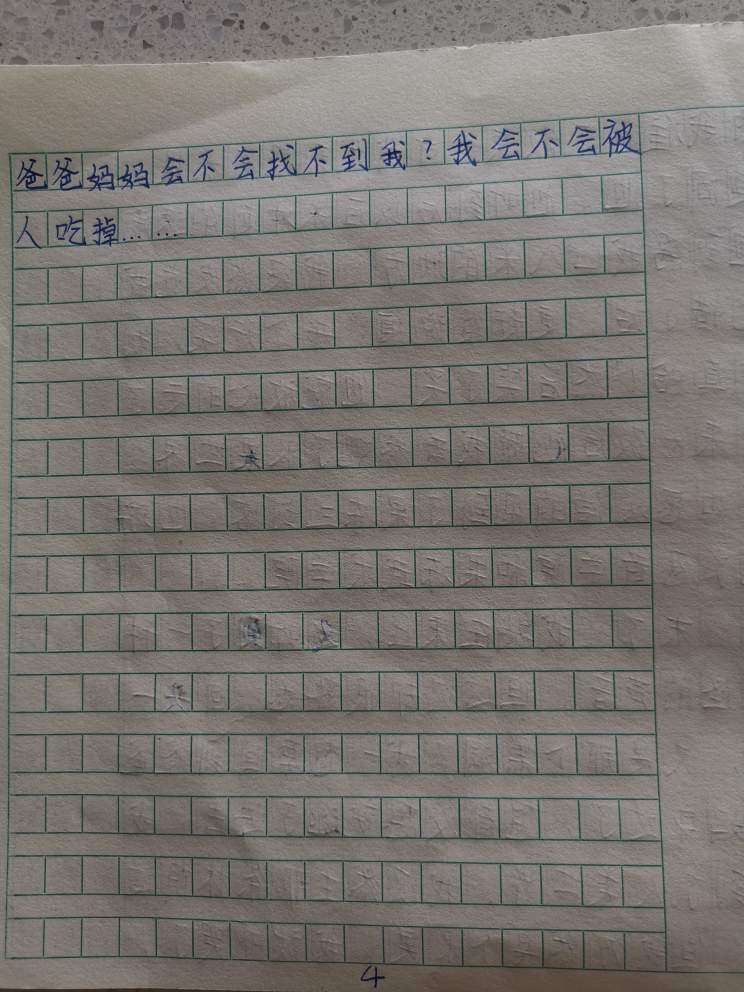 爸爸妈妈会不会找不到我？我会不会被
人吃掉……
4